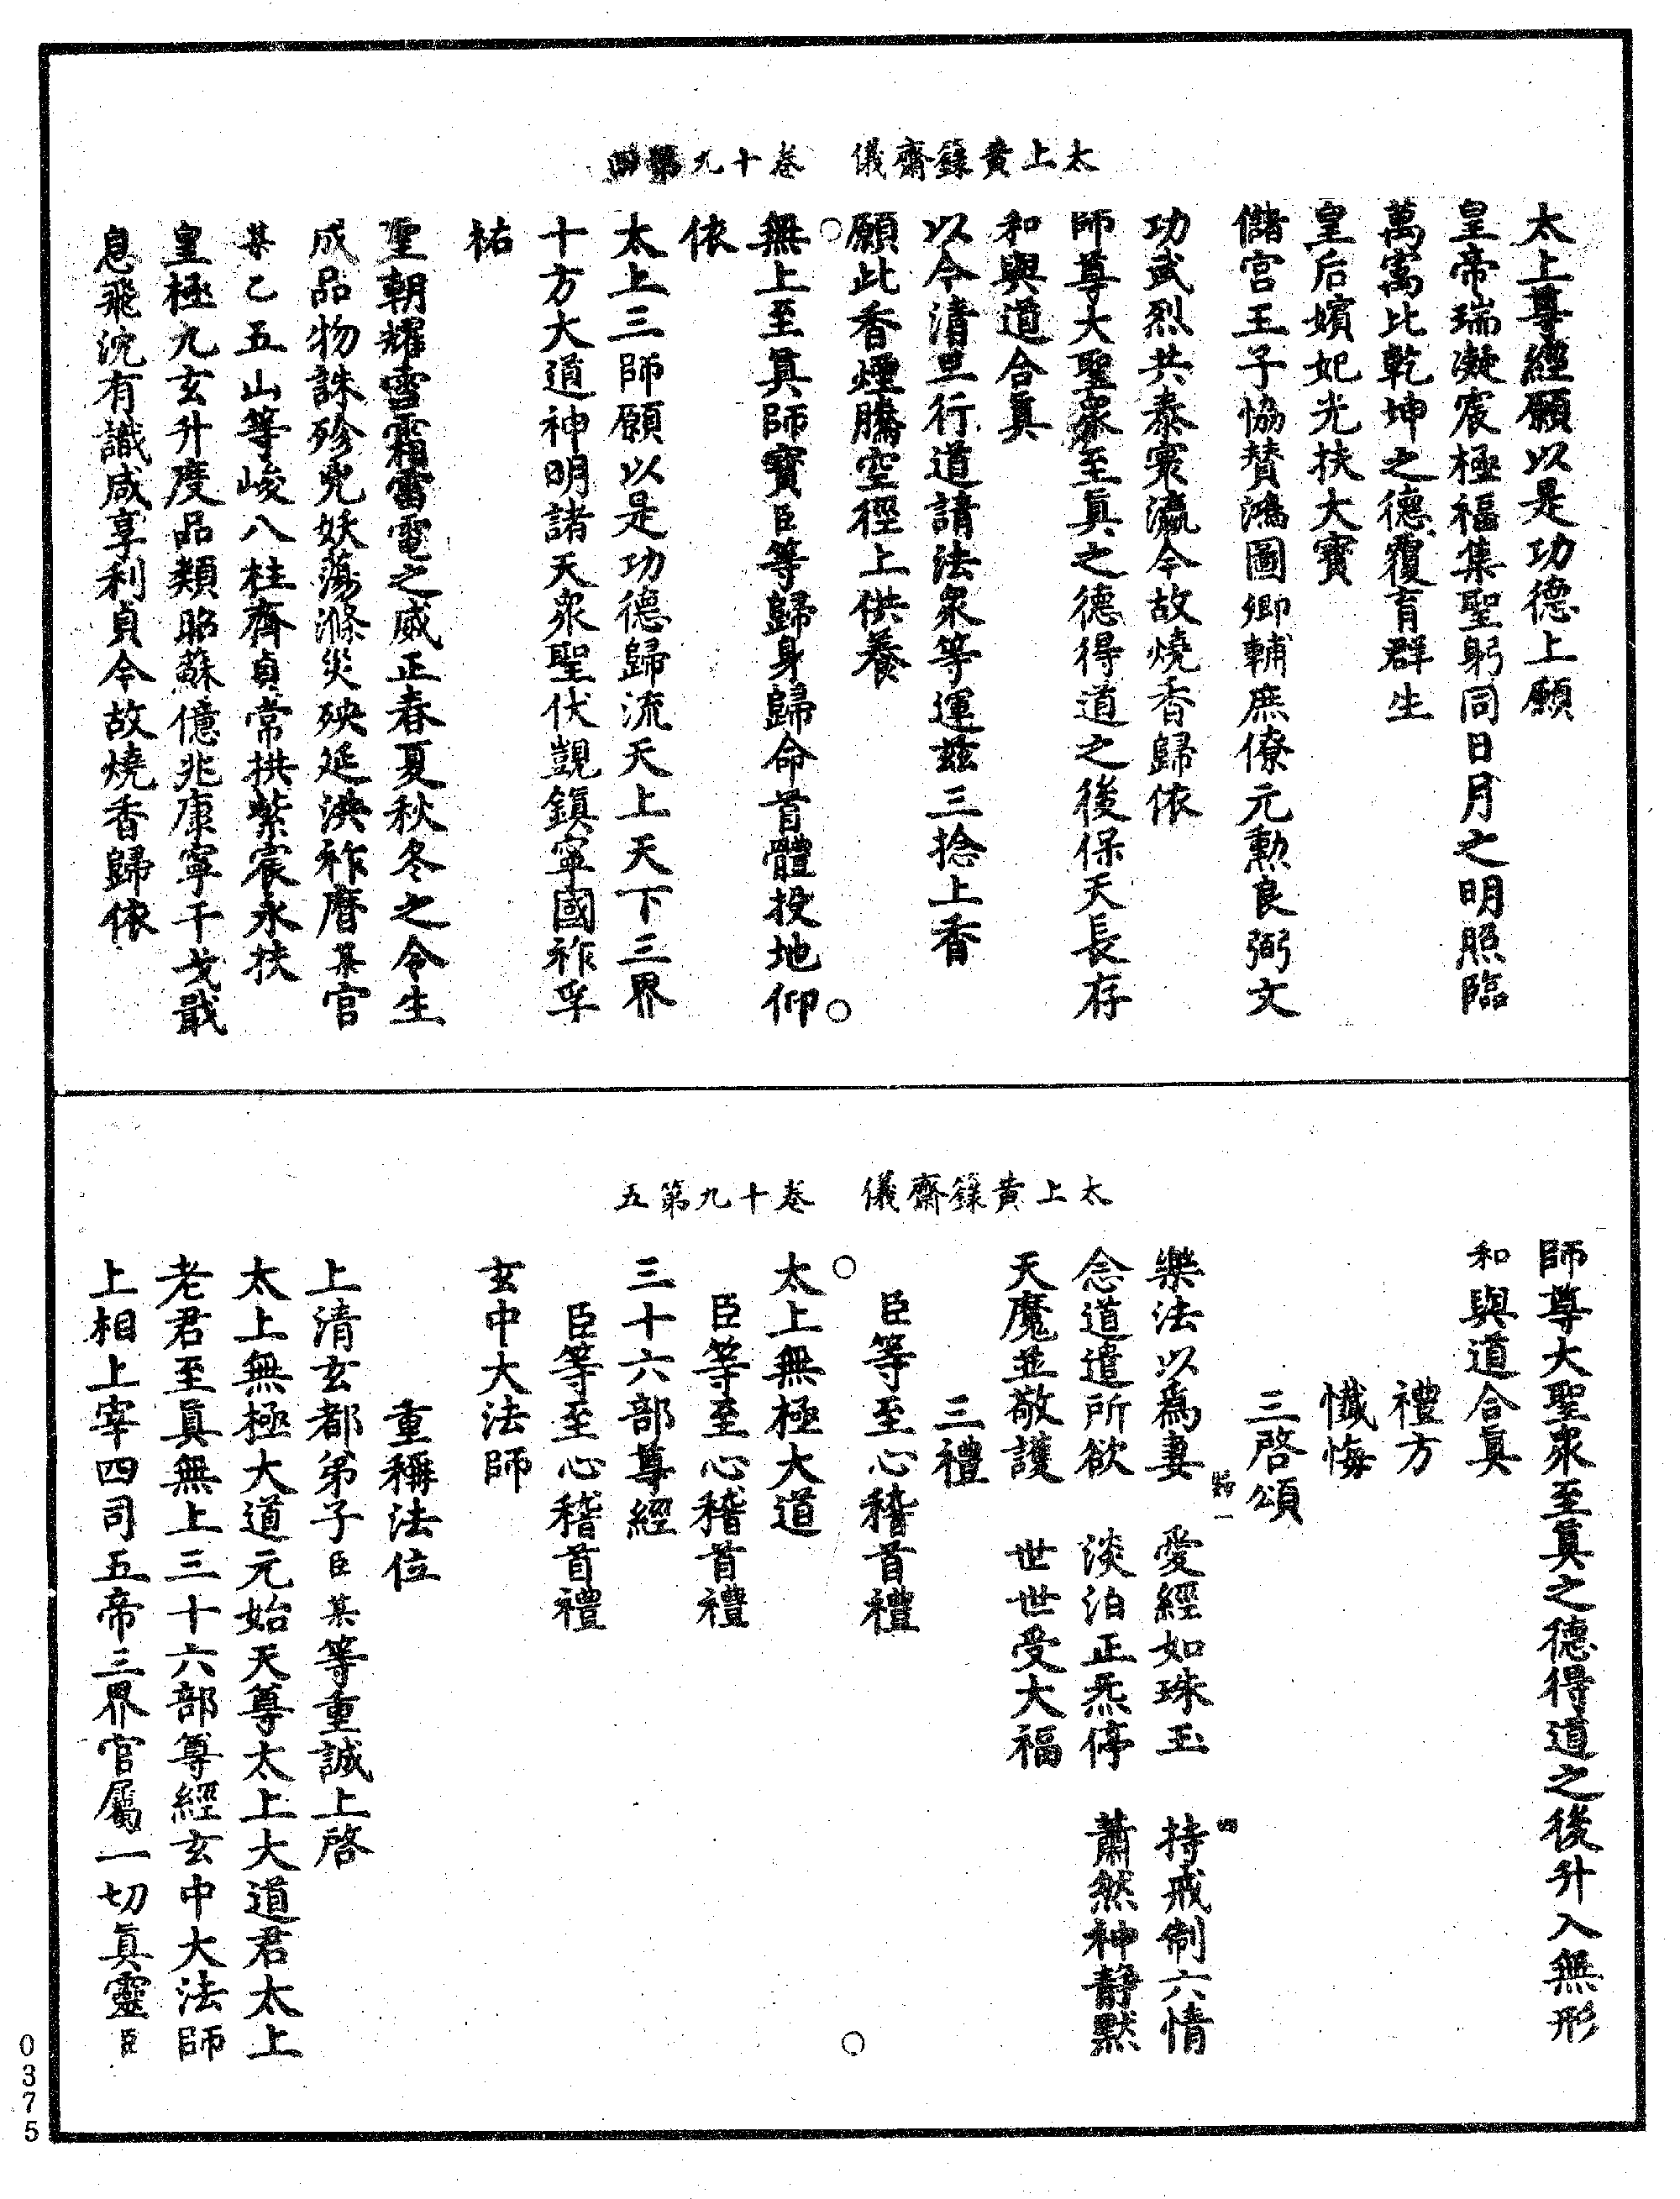 太上黃籙齋儀　卷十九第四
太上尊經願以是功德上願
皇帝瑞凝宸極福集聖躬同日月之明照臨
萬寓比乾坤之德覆育群生
皇后嬪妃光扶大寶
儲宮王子恊贊鴻圖卿輔庶僚元勲良弼文
功武烈共泰寰瀛今故燒香歸依
師尊大聖衆至真之德得道之後保天長存
和與道合真
以今清旦行道請法衆等運茲三捻上香
願此香煙騰空徑上供養
無上至真師寶臣等歸身歸命首體投地仰
依
太上三師願以是功德歸流天上天下三界
十方大道神明諸天衆聖伏覬鎮寜國祚孚
祐
聖朝耀雪霜雷電之威正春夏秋冬之令生
成品物誅殄兇妖蕩滌災殃延洪祚曆某官
某乙五山等峻八柱齊貞常拱紫宸永扶
皇極九玄升度品類昭蘇億兆康寧干戈戢
息飛沈有識咸享利貞今故燒香歸依
太上黃籙齋儀　卷十九第五
師尊大聖衆至真之德得道之後升入無形
和與道合真
禮方
懺悔
三啓頌
樂法以為妻　愛經如珠玉　持戒制六情
念道遣所欲　淡泊正炁停　蕭然神靜默
天魔並敬護　世世受大福
三禮
臣等至心稽首禮
太上無極大道
臣等至心稽首禮
三十六部尊經
臣等至心稽首禮
玄中大法師
重稱法位
上清玄都弟子臣某等重誠上啓
太上無極大道元始天尊太上大道君太上
老君至真無上三十六部尊經玄中大法師
上相上宰四司五帝三界官屬一切真靈臣
0375